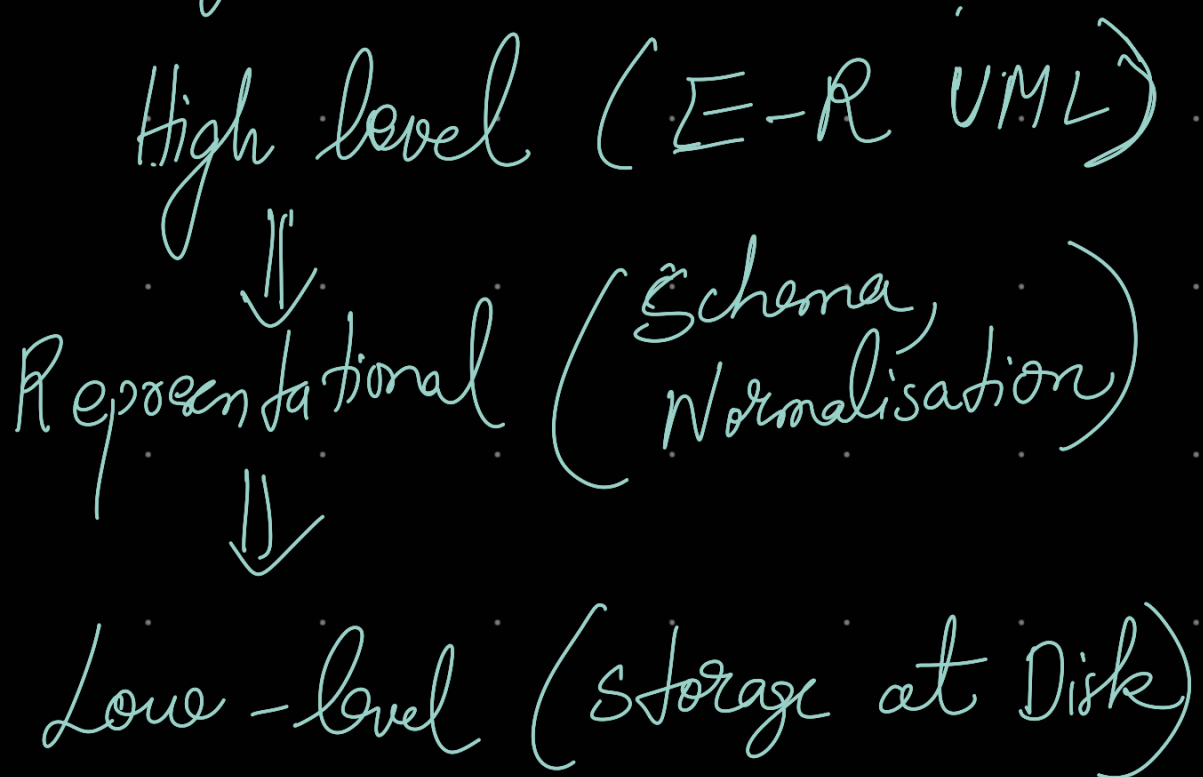 High level (E-R UML)
⇓
Representational (Schema,
Normalisation)
⇓
Low-level (Storage at Disk)